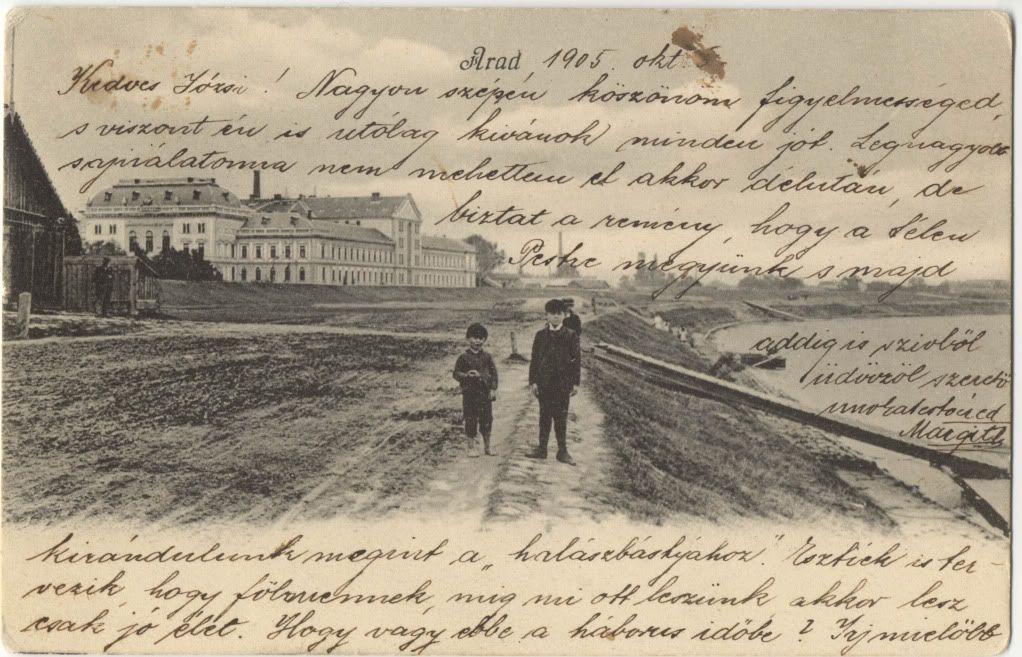 Arad 1905. okt
Kedves Józsi! Nagyon szépen köszönöm figyelmességed,
s viszont én is utólag kivánok minden jót. Legnagyobb
sajnálatomra nem mehettem el akkor délután, de
biztat a remény, hogy a télen
Pestre megyünk s majd
addig is szivből
üdvözöl szerető
unokatestvéred
Margit
kirándulunk megint a „halászbástyához". Esztiék is ter-
vezik, hogy fölmennek, mig mi ott leszünk akkor lesz
csak jó élet. Hogy vagy ebbe a háborus időbe? Irj mielőbb